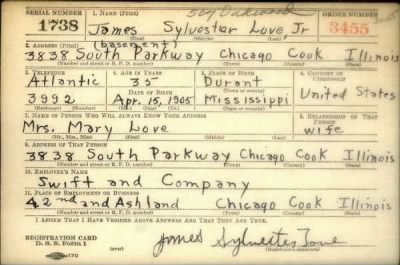 SERIAL NUMBER 1. NAME (Print) ORDER NUMBER
1738 James Sylvester Love, Jr 3455
(First) (Middle) (Last)
2. ADDRESS (Print) (basement)
3838 South Parkway Chicago Cook Illinois
(Number and street or R. F. D. number) (Town) (County) (State)
3. TELEPHONE 4. AGE IN YEARS 5. PLACE OF BIRTH 6. COUNTRY OF CITIZENSHIP
Atlantic 35 Durant United States
DATE OF BIRTH
3992 Apr. 15, 1905 Mississippi
7. NAME OF PERSON WHO WILL ALWAYS KNOW YOUR ADDRESS 8. RELATIONSHIP OF THAT PERSON
Mrs. Mary Love wife
(Mr., Mrs., Miss) (First) (Middle) (Last)
9. ADDRESS OF THAT PERSON
3838 South Parkway Chicago Cook Illinois
(Number and street or R. F. D. number) (Town) (County) (State)
10. EMPLOYER'S NAME
Swift and Company
11. PLACE OF EMPLOYMENT OR BUSINESS
42nd and Ashland Chicago Cook Illinois
(Number and street or R. F. D. number) (Town) (County) (State)
I AFFIRM THAT I HAVE VERIFIED ABOVE ANSWERS AND THAT THEY ARE TRUE.
REGISTRATION CARD
D. S. S. Form 1 (over) James Sylvester Love
(Registrant's signature)